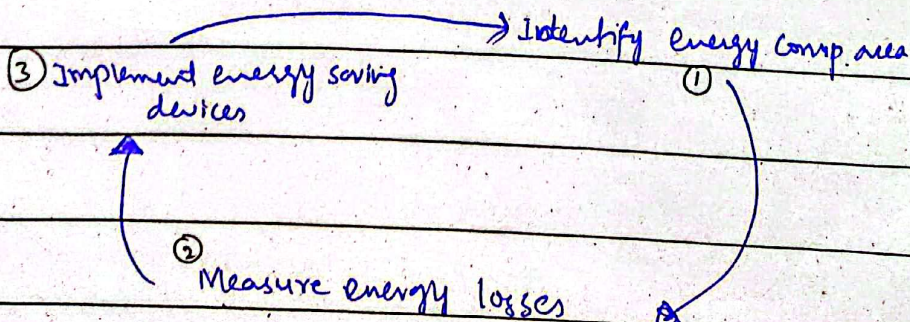 Identify energy comp. area
①
③ Implement energy saving
devices
②
Measure energy losses